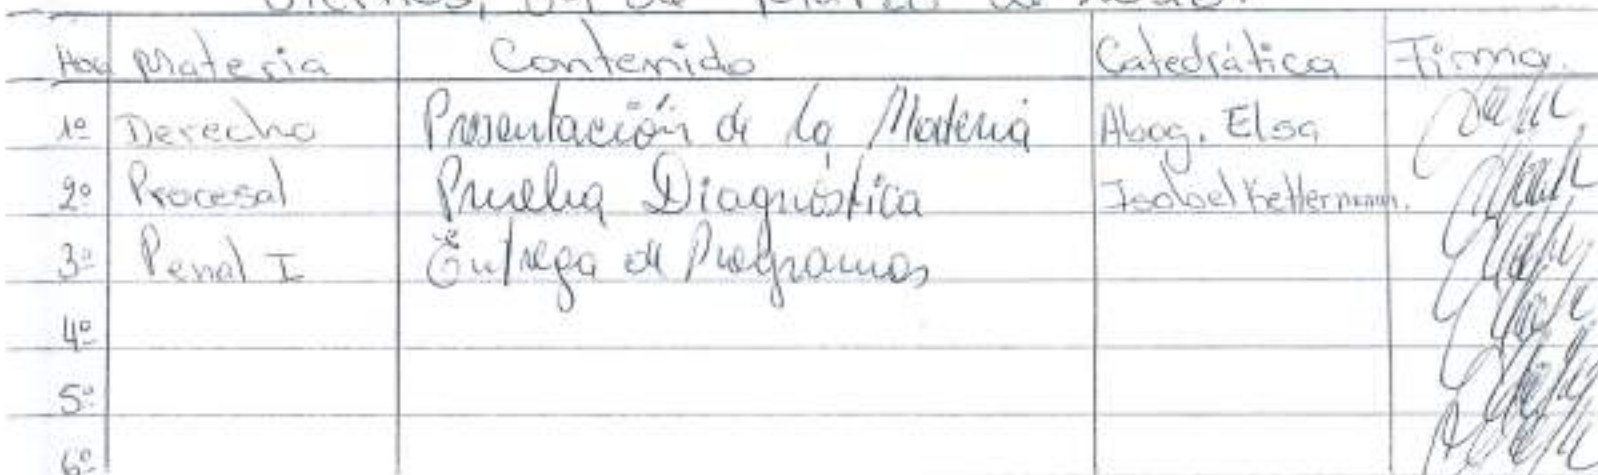 Viernes, de Marzo de
Hora Materia Contenido Catedrática Firma.
1º Derecho Presentación de la Materia Abog. Elsa
2º Procesal Prueba Diagnóstica Isabel Kettermann.
3º Penal I Entrega de Programas
4º
5º
6º